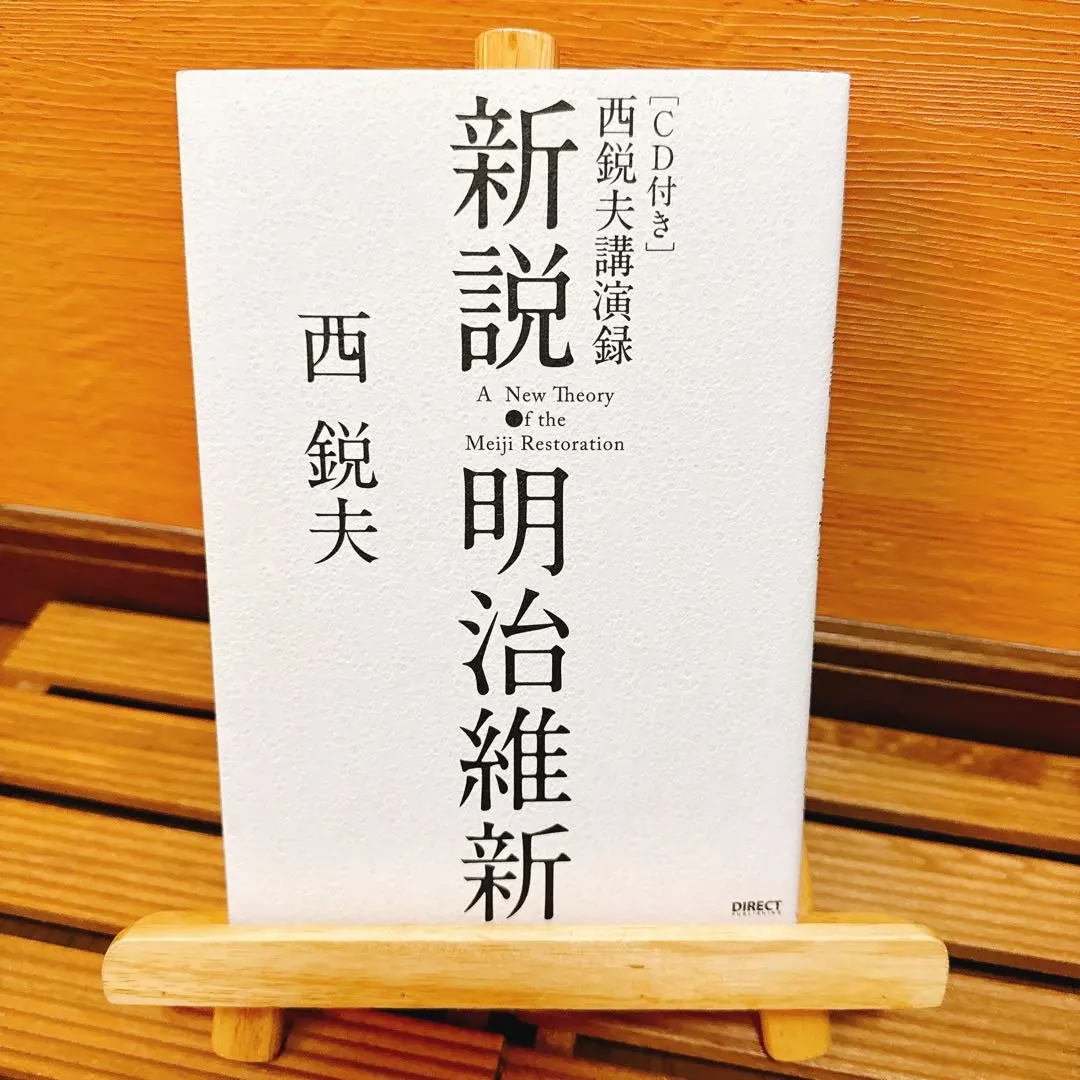 [CD付き]
西鋭夫講演録
新説
A New Theory
●f the
Meiji Restoration
明治維新
西 鋭夫
DIRECT
PUBLISHING